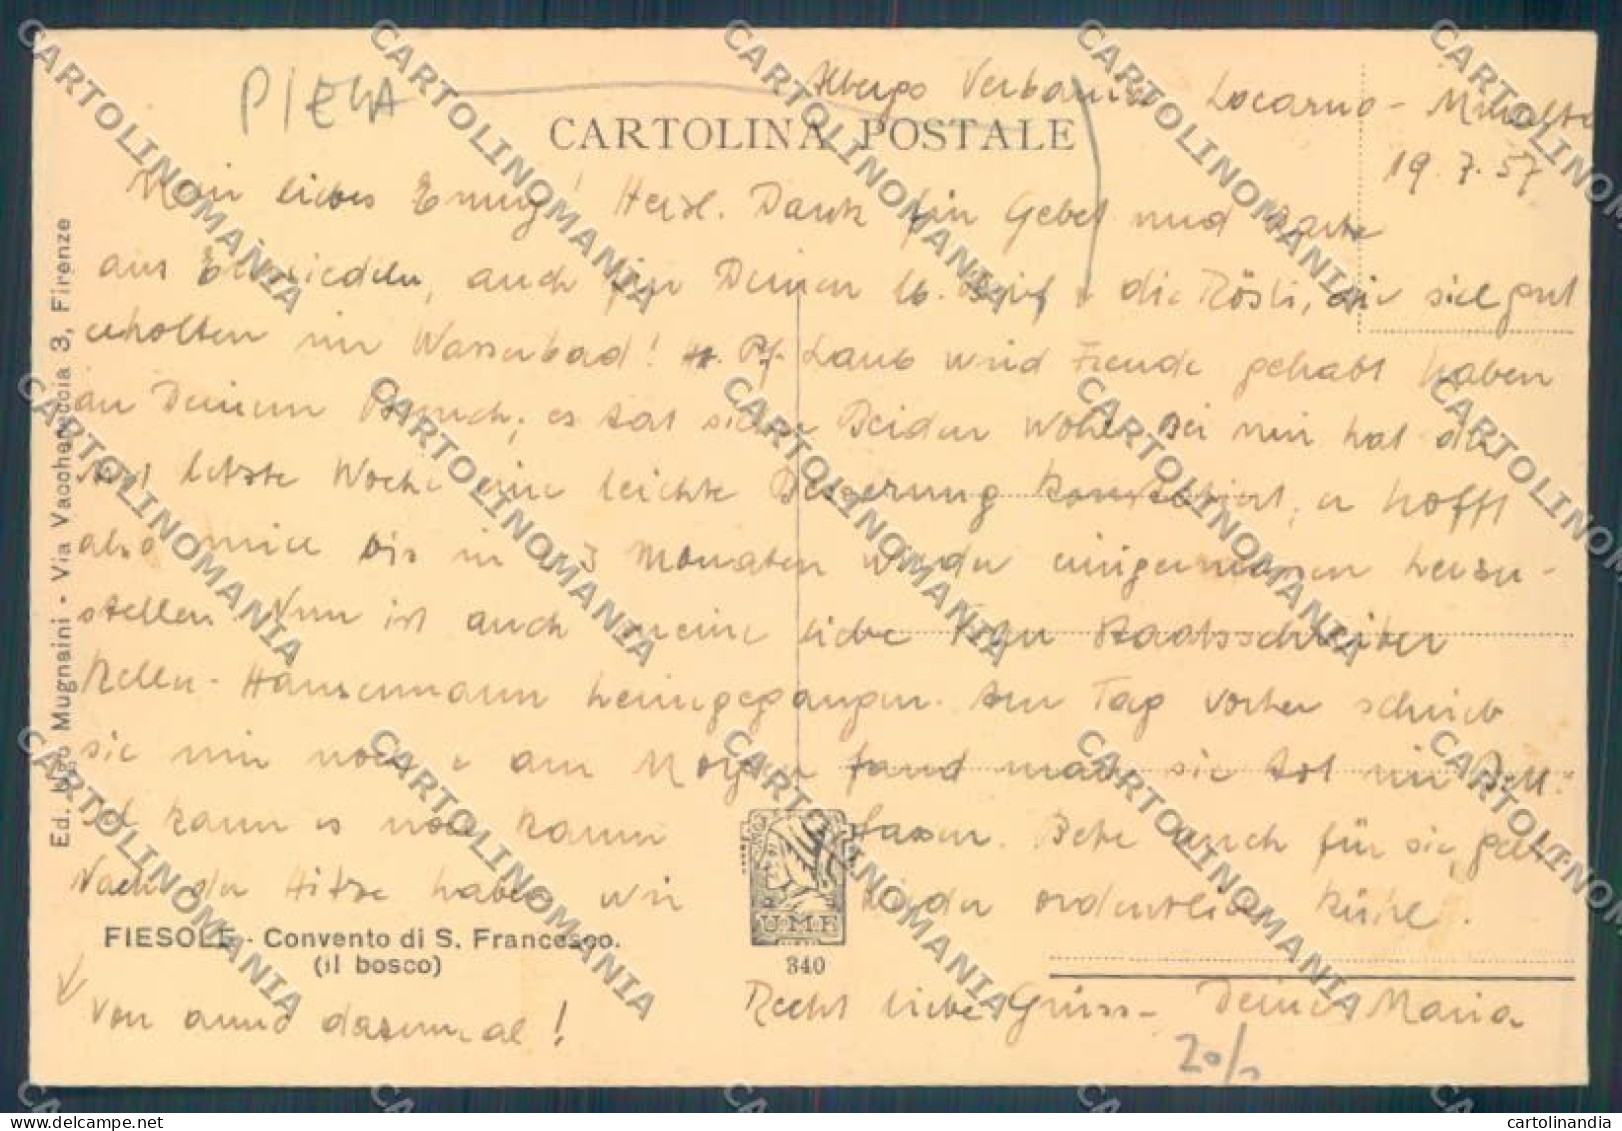 PIEGA
Albergo Verbania Locarno - Muralto
CARTOLINA POSTALE
19.7.57
Mein liebes Emmy! Herzl. Dank für Gebet und Karte
aus Einsiedeln, auch für Deinen lb. Brief & die Rösli, die sich gut
erholten im Wasserbad! H. Pf. Laub wird Freude gehabt haben
an Deinem Besuch; es tat sicher Beiden wohl. Bei mir hat der
Arzt letzte Woche eine leichte Besserung konstatiert, er hofft
also mich bis in 2-3 Monaten wieder einigermassen herzu-
stellen. Nun ist auch meine liebe Frau Staatsschreiber
Keller-Hansemann heimgegangen. Am Tag vorher schrieb
sie mir noch & am Morgen fand man sie tot im Bett.
Ich kann es noch kaum fassen. Bete auch für sie, gelt.
Nach der Hitze haben wir wieder ordentlich kühl.
FIESOLE - Convento di S. Francesco.
(il bosco)
UMF
340
von anno dazumal!
Recht liebe Grüsse Deine Maria
20/
Ed. Ugo Mugnaini - Via Vacchereccia 3, Firenze
CARTOLINOMANIA
cartolinandia